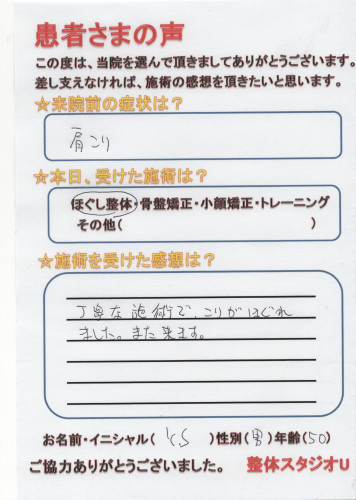 患者さまの声
この度は、当院を選んで頂きましてありがとうございます。
差し支えなければ、施術の感想を頂きたいと思います。
☆来院前の症状は?
肩こり
☆本日、受けた施術は?
ほぐし整体・骨盤矯正・小顔矯正・トレーニング
その他( )
☆施術を受けた感想は?
丁寧な施術で、こりがほぐれ
ました。また来ます。
お名前・イニシャル( Y.S )性別(男)年齢(50)
ご協力ありがとうございました。 整体スタジオU